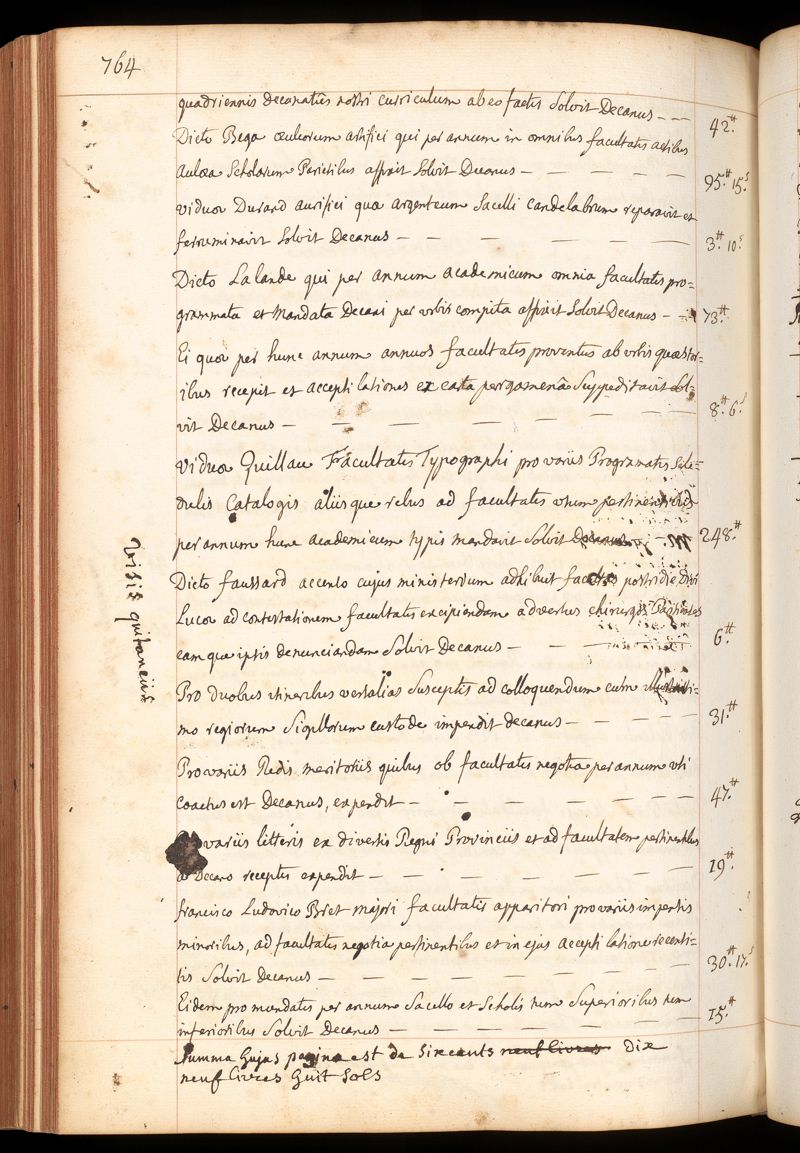 764
quadriennis decanatûs nostri curriculum ab eo factis Solvit Decanus - - - 42.tt
Dicto Bega aulæorum artifici qui per annum in omnibus facultatis actibus
Aulæa Scholarum Parietibus affixit Solvit Decanus - - - - - 95.tt 15.s
viduæ Durand aurifici quæ argenteum Sacelli candelabrum reparavit et
ferruminavit Solvit Decanus - - - - - - 3.tt 10.s
Dicto Lalande qui per annum academicum omnia facultatis pro=
grammata et Mandata Decani per urbis compita affixit Solvit Decanus - - 73.tt
Ei qui per hunc annum annuos facultatis proventus ab urbis quæstor=
ibus recepit et accepti lationes ex carta pergamenâ Suppeditavit Sol=
vit Decanus - - - - - - - - 8.tt 6.s
viduæ Quillau Facultatis Typographi pro variis Programatis Sche=
dulis Catalogis aliisque rebus ad facultatis usum pertinentibus
per annum hunc academicum typis mandavit Solvit Decanus - - 248.tt
Dicto faussard accenso cujus ministerium adhibuit facultas postridie divi
Lucæ ad contestationem facultatis excipiendam adversus chirurgos Parisienses
eamque ipsis denunciandam Solvit Decanus - - - - 6.tt
Pro duobus itineribus versalias Susceptis ad colloquendum cum illustrissi=
mo regiorum Sigillorum custode impendit decanus - - - - 31.tt
Pro variis Redis meritoriis quibus ob facultatis negotia per annum uti
coactus est Decanus, expendit - - - - - - - - 47.tt
Pro variis litteris ex diversis Regni Provinciis et ad facultatem pertinentibus
a Decano receptis expendit - - - - - - - 19.tt
francisco Ludovico Bret majori facultatis apparitori pro variis impensis
minoribus, ad facultatis negotia pertinentibus et in ejus accepti latione recensi=
tis Solvit Decanus - - - - - - - - 30.tt 17.s
Eidem pro mundatis per annum Sacello et Scholis tum Superioribus tum
inferioribus Solvit Decanus - - - - - - - 15.tt
Summa hujus paginæ est de Sixcents neuf livres dix
neuf livres huit sols
visis quitanciis